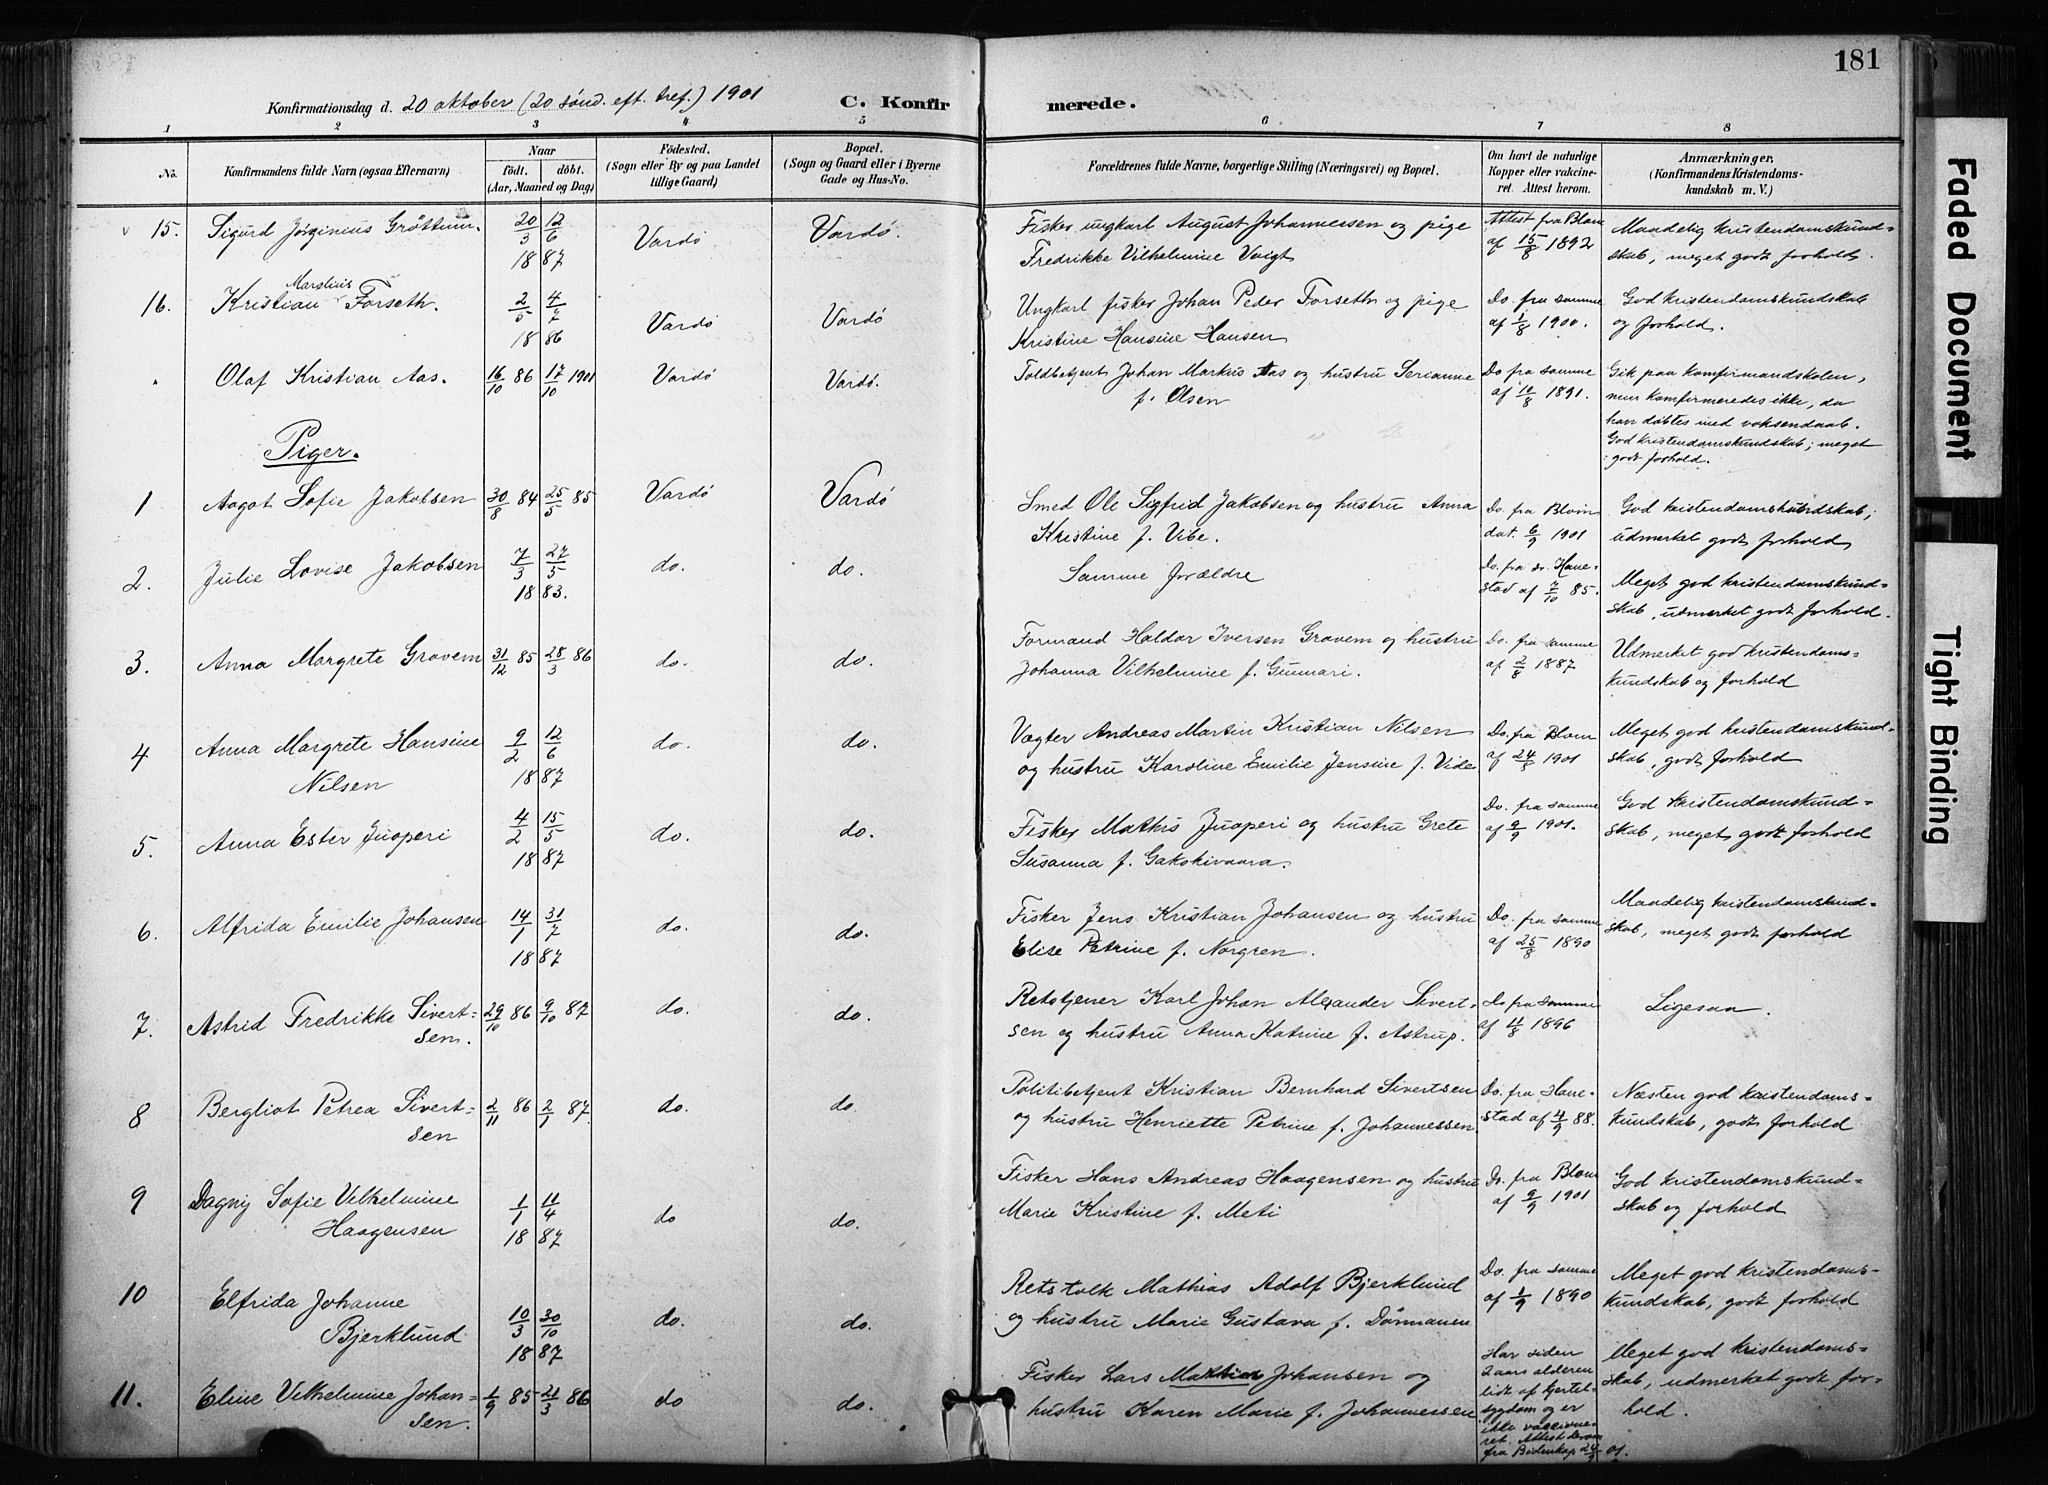 181
Konfirmationsdag d. 20 oktober (20 sönd. eft. tref.) 1901 C. Konfirmerede.
1 2 3 4 5 6 7 8
No. Konfirmandens fulde Navn (ogsaa Efternavn) Naar födt. döbt. (Aar, Maaned og Dag) Födested. (Sogn eller By og paa Landet tillige Gaard) Bopæl. (Sogn og Gaard eller i Byerne Gade og Hus-No. Forældrenes fulde Navne, borgerlige Stilling (Næringsvei) og Bopæl. Om havt de naturlige Kopper eller vakcineret. Attest herom. Anmærkninger, (Konfirmandens Kristendomskundskab m. V.)
15. Sigurd Jörginius Gröttum. 20/3 12/6 1887 Vardö Vardö. Fisker ungkarl August Johannessen og pige Fredrikke Vilhelmine Voigt Attest fra Blom af 15/8 1892 Maadelig kristendomskundskab, meget godt forhold.
16. Kristian Marelius Forseth. 2/5 4/7 1886 Vardö Vardö Ungkarl fisker Johan Peder Forseth og pige Kristine Hansine Hansen Do. fra samme af 1/8 1900. God kristendomskundskab og forhold.
Olaf Kristian Aas. 16/10 86 17/10 1901 Vardö Vardö. Toldbetjent Johan Markus Aas og hustru Serianne f. Olsen Do fra samme af 10/8 1891. Gik paa konfirmandskolen, men konfirmeredes ikke, da han döbtes med voksendaab. God kristendomskundskab; meget godt forhold.
Piger.
1 Aagot Sofie Jakobsen 30/8 84 25/5 85 Vardö Vardö Smed Ole Sigfrid Jakobsen og hustru Anna Kristine f. Vibe. Do. fra Blom dat. 6/9 1901 God kristendomskundskab; udmerket godt forhold
2. Julie Lovise Jakobsen 7/3 27/5 1883. do. do. Samme forældre Do. fra dr. Hanestad af 7/10 85. Meget god kristendomskundskab, udmerket godt forhold.
3. Anna Margrete Gravem 31/12 85 28/3 86 do. do. Formand Haldor Iversen Gravem og hustru Johanna Vilhelmine f. Gunnari. Do. fra samme af 2/8 1887 Udmerket god kristendomskundskab og forhold
4 Anna Margrete Hansine Nilsen 9/2 12/6 1887 do. do. Vægter Andreas Martin Kristian Nilsen og hustru Karoline Emilie Jensine f. Vide Do. fra Blom af 24/5 1901 Meget god kristendomskundskab, godt forhold
5. Anna Ester Juoperi 4/2 15/5 1887 do. do. Fisker Mathis Juoperi og hustru Grete Susanna f. Gakokivaara. Do. fra samme af 9/9 1901. God kristendomskundskab, meget godt forhold
6. Alfrida Emilie Johansen 14/1 31/7 1887 do. do. Fisker Jens Kristian Johansen og hustru Elise Petrine f. Norgren. Do. fra samme af 25/8 1890 Maadelig kristendomskundskab, meget godt forhold
7. Astrid Fredrikke Sivertsen. 29/10 86 9/10 87 do. do. Retstjener Karl Johan Alexander Sivertsen og hustru Anna Katrine f. Astrup. Do fra samme af 11/8 1896 Ligesaa.
8 Bergliot Petrea Sivertsen 2/11 86 2/1 87. do. do. Politibetjent Kristian Bernhard Sivertsen og hustru Henriette Petrine f. Johannessen. Do. fra Hanestad af 4/9 88. Næsten god kristendomskundskab, godt forhold
9 Dagny Sofie Vilhelmine Haagensen 1/1 11/4 1887 do do. Fisker Hans Andreas Haagensen og hustru Marie Kristine f. Meti Do. fra Blom af 9/9 1901 God kristendomskundskab og forhold
10 Elfrida Johanne Bjerklund 10/3 30/10 1887 do. do. Retstolk Mathias Adolf Bjerklund og hustru Marie Gustava f. Dörmanen Do. fra samme af 1/9 1890 Meget god kristendomskundskab, godt forhold
11. Eline Vilhelmine Johansen. 1/9 85 21/3 86 do do. Fisker Lars Mathias Johansen og hustru Karen Marie f. Johannessen Har siden 2 aars alderen lidt af kjertelsygdom og er ikke vaccineret. Attest derom fra Bidenkap 24/9 01. Meget god kristendomskundskab, udmerket godt forhold.
Faded Document
Tight Binding